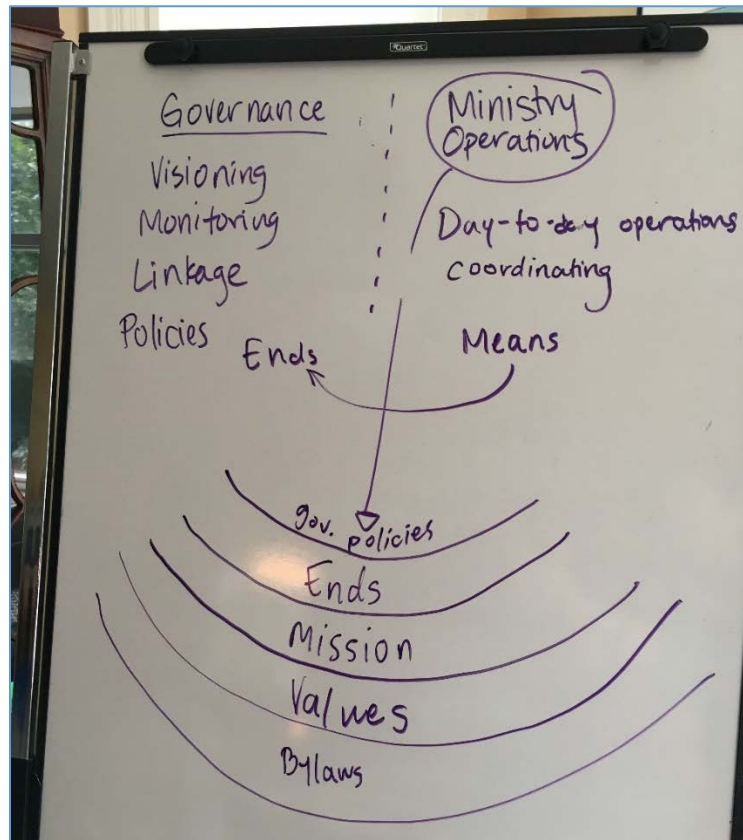 Quartet
Governance
Visioning
Monitoring
Linkage
Policies
Ends
Ministry
Operations
Day-to-day operations
coordinating
Means
gov. policies
Ends
Mission
Values
Bylaws